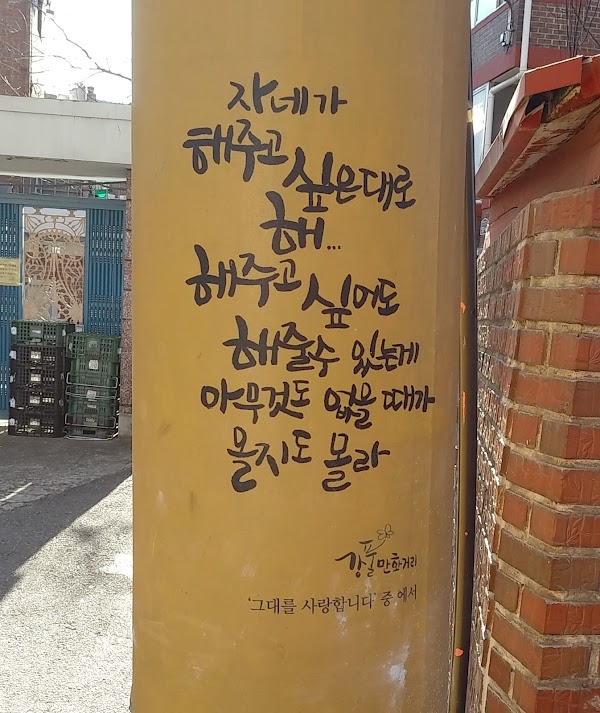 자네가
해주고 싶은대로
해...
해주고 싶어도
해줄수 있는게
아무것도 없을 때가
올지도 몰라
강풀만화거리
'그대를 사랑합니다' 중에서